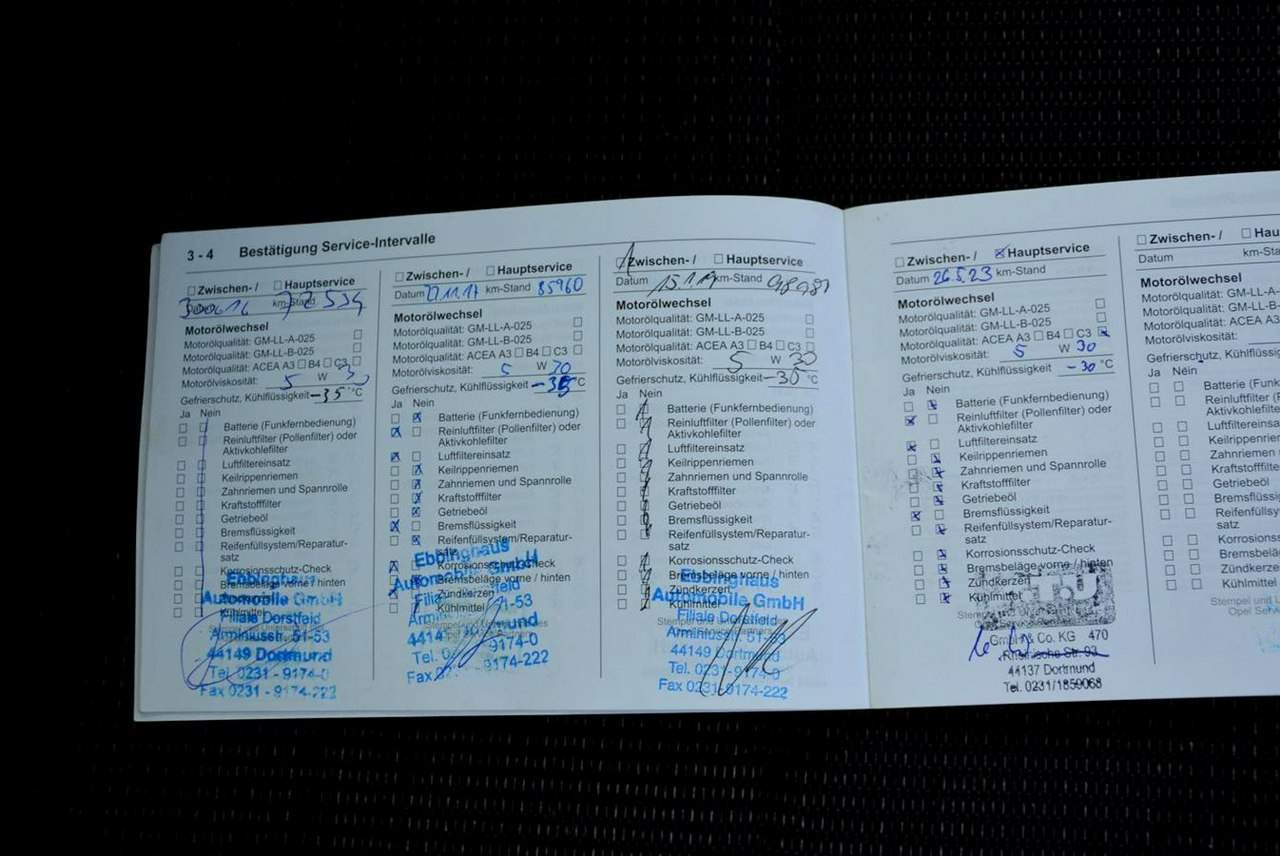 3 - 4 Bestätigung Service-Intervalle
□ Zwischen- / □ Hauptservice
km-Stand 72 534
Motorölwechsel
Motorölqualität: GM-LL-A-025 □
Motorölqualität: GM-LL-B-025 □
Motorölqualität: ACEA A3 □ B4 □ C3 □
Motorölviskosität: 5 W 30
Gefrierschutz, Kühlflüssigkeit -35 °C
Ja Nein
Batterie (Funkfernbedienung)
Reinluftfilter (Pollenfilter) oder
Aktivkohlefilter
Luftfiltereinsatz
Keilrippenriemen
Zahnriemen und Spannrolle
Kraftstofffilter
Getriebeöl
Bremsflüssigkeit
Reifenfüllsystem/Reparatur-
satz
Korrosionsschutz-Check
Bremsbeläge vorne / hinten
Ebbinghaus
Automobile GmbH
Filiale Dorstfeld
Arminiusstr. 51-53
44149 Dortmund
Tel. 0231 - 9174-0
Fax 0231 - 9174-222
□ Zwischen- / □ Hauptservice
Datum 27.11.17 km-Stand 85960
Motorölwechsel
Motorölqualität: GM-LL-A-025 □
Motorölqualität: GM-LL-B-025 □
Motorölqualität: ACEA A3 □ B4 □ C3 □
Motorölviskosität: 5 W
Gefrierschutz, Kühlflüssigkeit -35 °C
Ja Nein
Batterie (Funkfernbedienung)
Reinluftfilter (Pollenfilter) oder
Aktivkohlefilter
Luftfiltereinsatz
Keilrippenriemen
Zahnriemen und Spannrolle
Kraftstofffilter
Getriebeöl
Bremsflüssigkeit
Reifenfüllsystem/Reparatur-
satz
Korrosionsschutz-Check
Bremsbeläge vorne / hinten
Zündkerzen
Kühlmittel
Ebbinghaus
Automobile GmbH
51-53
Dortmund
Tel. 9174-0
Fax 9174-222
Zwischen- / □ Hauptservice
Datum km-Stand 98981
Motorölwechsel
Motorölqualität: GM-LL-A-025 □
Motorölqualität: GM-LL-B-025 □
Motorölqualität: ACEA A3 □ B4 □ C3 □
Motorölviskosität: 5 W 30
Gefrierschutz, Kühlflüssigkeit -30 °C
Ja Nein
Batterie (Funkfernbedienung)
Reinluftfilter (Pollenfilter) oder
Aktivkohlefilter
Luftfiltereinsatz
Keilrippenriemen
Zahnriemen und Spannrolle
Kraftstofffilter
Getriebeöl
Bremsflüssigkeit
Reifenfüllsystem/Reparatur-
satz
Korrosionsschutz-Check
Bremsbeläge vorne / hinten
Zündkerzen
Kühlmittel
Ebbinghaus
Automobile GmbH
Filiale Dorstfeld
Arminiusstr. 51-53
44149 Dortmund
Tel. 0231 - 9174-0
Fax 0231-9174-222
□ Zwischen- / ☒ Hauptservice
Datum 26.5.23 km-Stand
Motorölwechsel
Motorölqualität: GM-LL-A-025 □
Motorölqualität: GM-LL-B-025 □
Motorölqualität: ACEA A3 □ B4 □ C3 ☒
Motorölviskosität: 5 W 30
Gefrierschutz, Kühlflüssigkeit -30 °C
Ja Nein
Batterie (Funkfernbedienung)
Reinluftfilter (Pollenfilter) oder
Aktivkohlefilter
Luftfiltereinsatz
Keilrippenriemen
Zahnriemen und Spannrolle
Kraftstofffilter
Getriebeöl
Bremsflüssigkeit
Reifenfüllsystem/Reparatur-
satz
Korrosionsschutz-Check
Bremsbeläge vorne / hinten
Zündkerzen
Kühlmittel
GmbH & Co. KG 470
Rheinische Str. 93
44137 Dortmund
Tel. 0231/1859068
□ Zwischen- / □ Hau
Datum km-Sta
Motorölwechsel
Motorölqualität: GM-LL-A-
Motorölqualität: GM-LL-B-
Motorölqualität: ACEA A3
Motorölviskosität:
Gefrierschutz, Kühlflüssi
Ja Nein
Batterie (Funkf
Reinluftfilter (
Aktivkohlefilte
Luftfiltereinsa
Keilrippenrien
Zahnriemen
Kraftstofffilte
Getriebeöl
Bremsflüssig
Reifenfüllsy
satz
Korrosions
Bremsbelä
Zündkerze
Kühlmittel
Stempel und U
Opel Ser